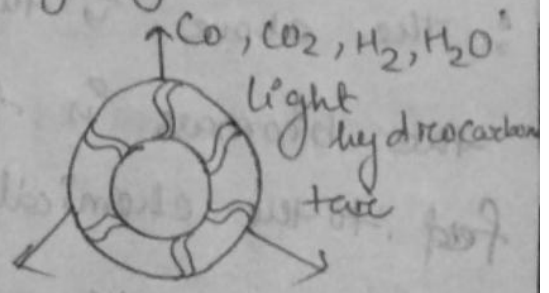 Co, CO2, H2, H2O
light
hydrocarbon
tar